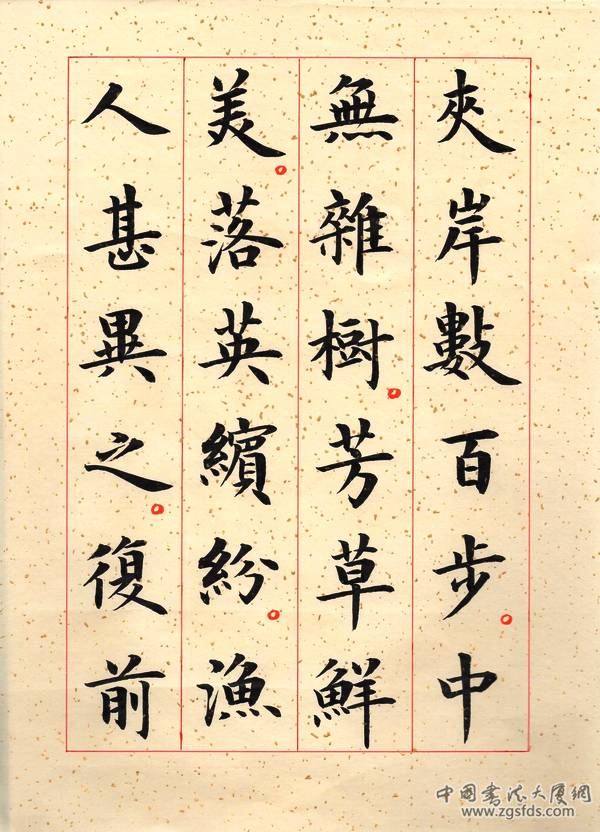 夾岸數百步。中
無雜樹。芳草鮮
美。落英繽紛。漁
人甚異之。復前
中国书法大厦網
www.zgsfds.com